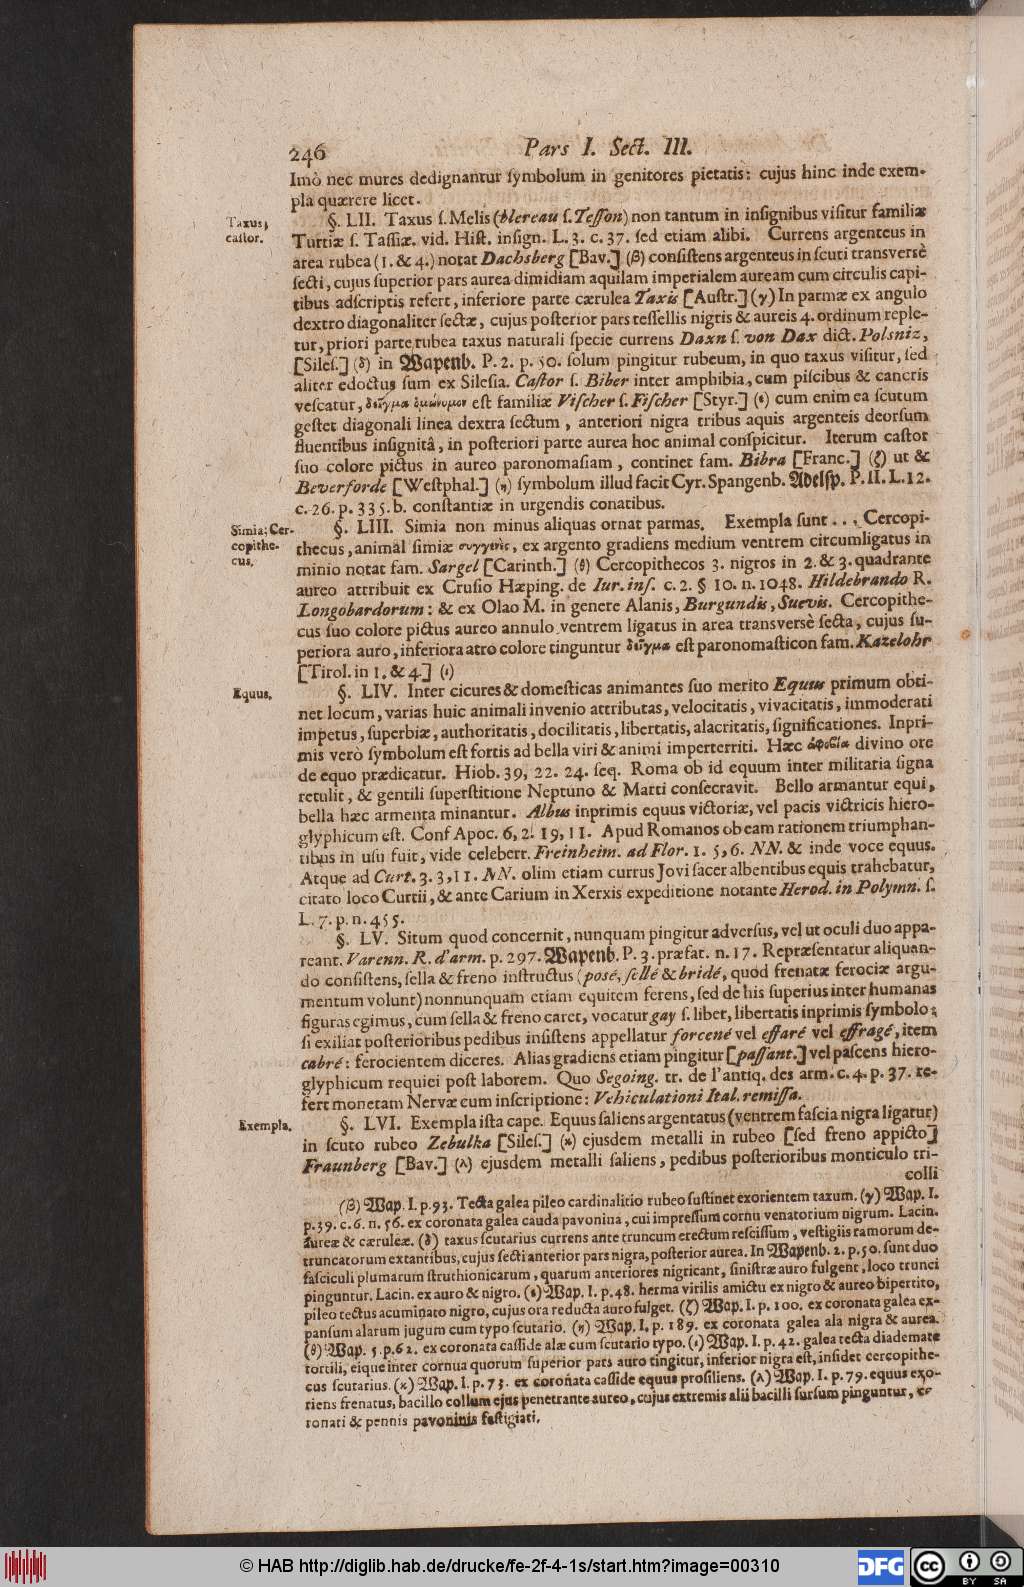 246 Pars I. Sect. III.
Imò nec mures dedignantur ſymbolum in genitores pietatis: cujus hinc inde exem-
pla quærere licet.
Taxus;
caſtor.
§. LII. Taxus ſ. Melis (blereau ſ. Teſſon) non tantum in inſignibus viſitur familiæ
Turtiæ ſ. Taſſiæ. vid. Hiſt. inſign. L. 3. c. 37. ſed etiam alibi. Currens argenteus in
area rubea (1. & 4.) notat Dachsberg [Bav.] (β) conſiſtens argenteus in ſcuti transverſè
ſecti, cujus ſuperior pars aurea dimidiam aquilam imperialem auream cum circulis capi-
tibus adſcriptis refert, inferiore parte cærulea Taxis [Auſtr.] (γ) In parmæ ex angulo
dextro diagonaliter ſectæ, cujus poſterior pars teſſellis nigris & aureis 4. ordinum reple-
tur, priori parte rubea taxus naturali ſpecie currens Daxn ſ. von Dax dict. Polsniz,
[Sileſ.] (δ) in Wapenb. P. 2. p. 50. ſolum pingitur rubeum, in quo taxus viſitur, ſed
aliter edoctus ſum ex Sileſia. Caſtor ſ. Biber inter amphibia, cum piſcibus & cancris
veſcatur, δεῖγμα ὁμώνυμον eſt familiæ Viſcher ſ. Fiſcher [Styr.] (ε) cum enim ea ſcutum
geſtet diagonali linea dextra ſectum, anteriori nigra tribus aquis argenteis deorſum
fluentibus inſignitâ, in poſteriori parte aurea hoc animal conſpicitur. Iterum caſtor
ſuo colore pictus in aureo paronomaſiam, continet fam. Bibra [Franc.] (ζ) ut &
Beverforde [Weſtphal.] (η) ſymbolum illud facit Cyr. Spangenb. Adelſp. P. II. L. 12.
c. 26. p. 335. b. conſtantiæ in urgendis conatibus.
Simia; Cer-
copithe-
cus.
§. LIII. Simia non minus aliquas ornat parmas. Exempla ſunt ... Cercopi-
thecus, animal ſimiæ συγγενὲς, ex argento gradiens medium ventrem circumligatus in
minio notat fam. Sargel [Carinth.] (θ) Cercopithecos 3. nigros in 2. & 3. quadrante
aureo attribuit ex Cruſio Hæping. de Iur. inſ. c. 2. § 10. n. 1048. Hildebrando R.
Longobardorum: & ex Olao M. in genere Alanis, Burgundis, Suevis. Cercopithe-
cus ſuo colore pictus aureo annulo ventrem ligatus in area transverſè ſecta, cujus ſu-
periora auro, inferiora atro colore tinguntur δεῖγμα eſt paronomaſticon fam. Kazelohr
[Tirol. in 1. & 4.] (ι)
Equus.
§. LIV. Inter cicures & domeſticas animantes ſuo merito Equus primum obti-
net locum, varias huic animali invenio attributas, velocitatis, vivacitatis, immoderati
impetus, ſuperbiæ, authoritatis, docilitatis, libertatis, alacritatis, ſignificationes. Inpri-
mis verò ſymbolum eſt fortis ad bella viri & animi imperterriti. Hæc ἀφοβία divino ore
de equo prædicatur. Hiob. 39, 22. 24. ſeq. Roma ob id equum inter militaria ſigna
retulit, & gentili ſuperſtitione Neptuno & Marti conſecravit. Bello armantur equi,
bella hæc armenta minantur. Albus inprimis equus victoriæ, vel pacis victricis hiero-
glyphicum eſt. Conf Apoc. 6, 2. 19, 11. Apud Romanos ob eam rationem triumphan-
tibus in uſu fuit, vide celeberr. Freinheim. ad Flor. 1. 5, 6. NN. & inde voce equus.
Atque ad Curt. 3. 3, 11. NN. olim etiam currus Jovi ſacer albentibus equis trahebatur,
citato loco Curtii, & ante Carium in Xerxis expeditione notante Herod. in Polymn. ſ.
L. 7. p. n. 455.
§. LV. Situm quod concernit, nunquam pingitur adverſus, vel ut oculi duo appa-
reant. Varenn. R. d'arm. p. 297. Wapenb. P. 3. præfat. n. 17. Repræſentatur aliquan-
do conſiſtens, ſella & freno inſtructus (posé, ſellé & bridé, quod frenatæ ferociæ argu-
mentum volunt) nonnunquam etiam equitem ferens, ſed de his ſuperius inter humanas
figuras egimus, cum ſella & freno caret, vocatur gay ſ. liber, libertatis inprimis ſymbolo;
ſi exiliat poſterioribus pedibus inſiſtens appellatur forcené vel effaré vel effragé, item
cabré: ferocientem diceres. Alias gradiens etiam pingitur [paſſant.] vel paſcens hiero-
glyphicum requiei poſt laborem. Quo Segoing. tr. de l'antiq. des arm. c. 4. p. 37. re-
fert monetam Nervæ cum inſcriptione: Vehiculationi Ital. remiſſa.
Exempla.
§. LVI. Exempla iſta cape. Equus ſaliens argentatus (ventrem faſcia nigra ligatur)
in ſcuto rubeo Zebulka [Sileſ.] (κ) ejusdem metalli in rubeo [ſed freno appicto]
Fraunberg [Bav.] (λ) ejusdem metalli ſaliens, pedibus poſterioribus monticulo tri-
colli
(β) Wap. I. p. 93. Tecta galea pileo cardinalitio rubeo ſuſtinet exorientem taxum. (γ) Wap. I.
p. 39. c. 6. n. 56. ex coronata galea cauda pavonina, cui impreſſum cornu venatorium nigrum. Lacin.
aureæ & cæruleæ. (δ) taxus ſcutarius currens ante truncum erectum reſciſſum, veſtigiis ramorum de-
truncatorum extantibus, cujus ſecti anterior pars nigra, poſterior aurea. In Wapenb. 2. p. 50. ſunt duo
faſciculi plumarum ſtruthionicarum, quarum anteriores nigricant, ſiniſtræ auro fulgent, loco trunci
pinguntur. Lacin. ex auro & nigro. (ε) Wap. I. p. 48. herma virilis amictu ex nigro & aureo bipertito,
pileo tectus acuminato nigro, cujus ora reducta auro fulget. (ζ) Wap. I. p. 100. ex coronata galea ex-
panſum alarum jugum cum typo ſcutario. (η) Wap. I. p. 189. ex coronata galea ala nigra & aurea.
(θ) Wap. 5. p. 62. ex coronata caſſide alæ cum ſcutario typo. (ι) Wap. I. p. 42. galea tecta diademate
tortili, eique inter cornua quorum ſuperior pars auro tingitur, inferior nigra eſt, inſidet cercopithe-
cus ſcutarius. (κ) Wap. I. p. 73. ex coronata caſſide equus proſiliens. (λ) Wap. I. p. 79. equus exo-
riens frenatus, bacillo collum ejus penetrante aureo, cujus extremis alii bacilli ſurſum pinguntur, co
ronati & pennis pavoninis faſtigiati.
© HAB http://diglib.hab.de/drucke/fe-2f-4-1s/start.htm?image=00310
DFG
cc BY SA